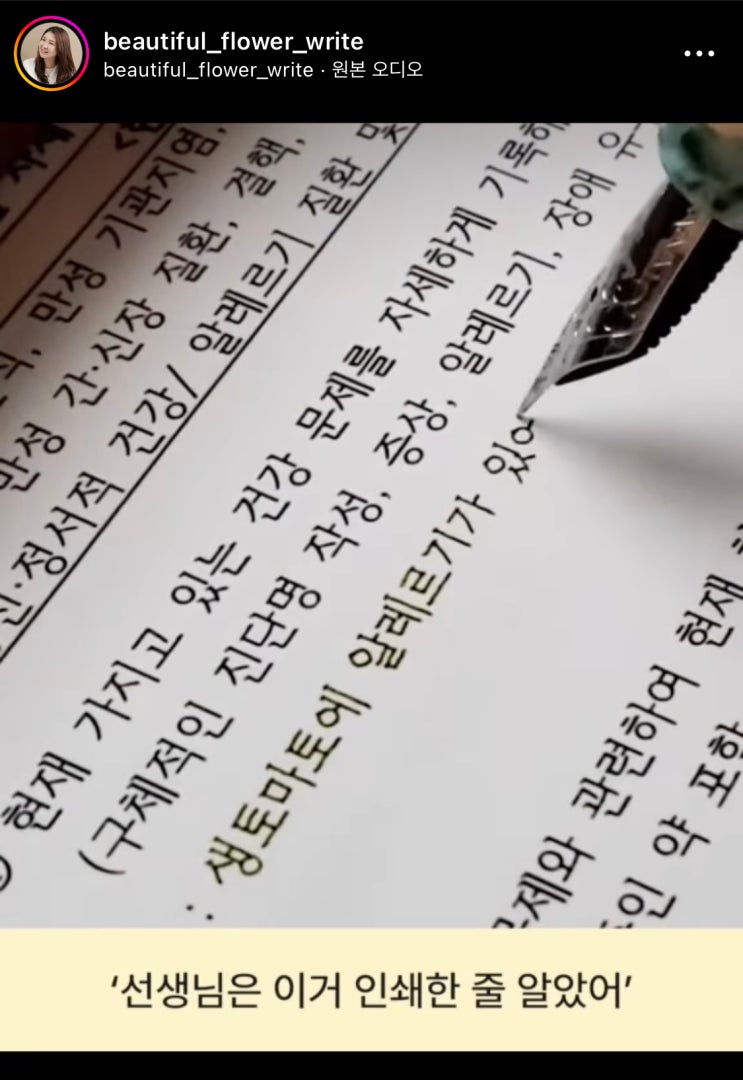 beautiful_flower_write
beautiful_flower_write · 원본 오디오
만성 기관지염,
만성 간·신장 질환, 결핵,
신·정서적 건강/ 알레르기 질환 및
현재 가지고 있는 건강 문제를 자세하게 기록해
(구체적인 진단명 작성, 증상, 알레르기, 장애 유
: 생토마토에 알레르기가 있
문제와 관련하여 현재
약 포함
‘선생님은 이거 인쇄한 줄 알았어’